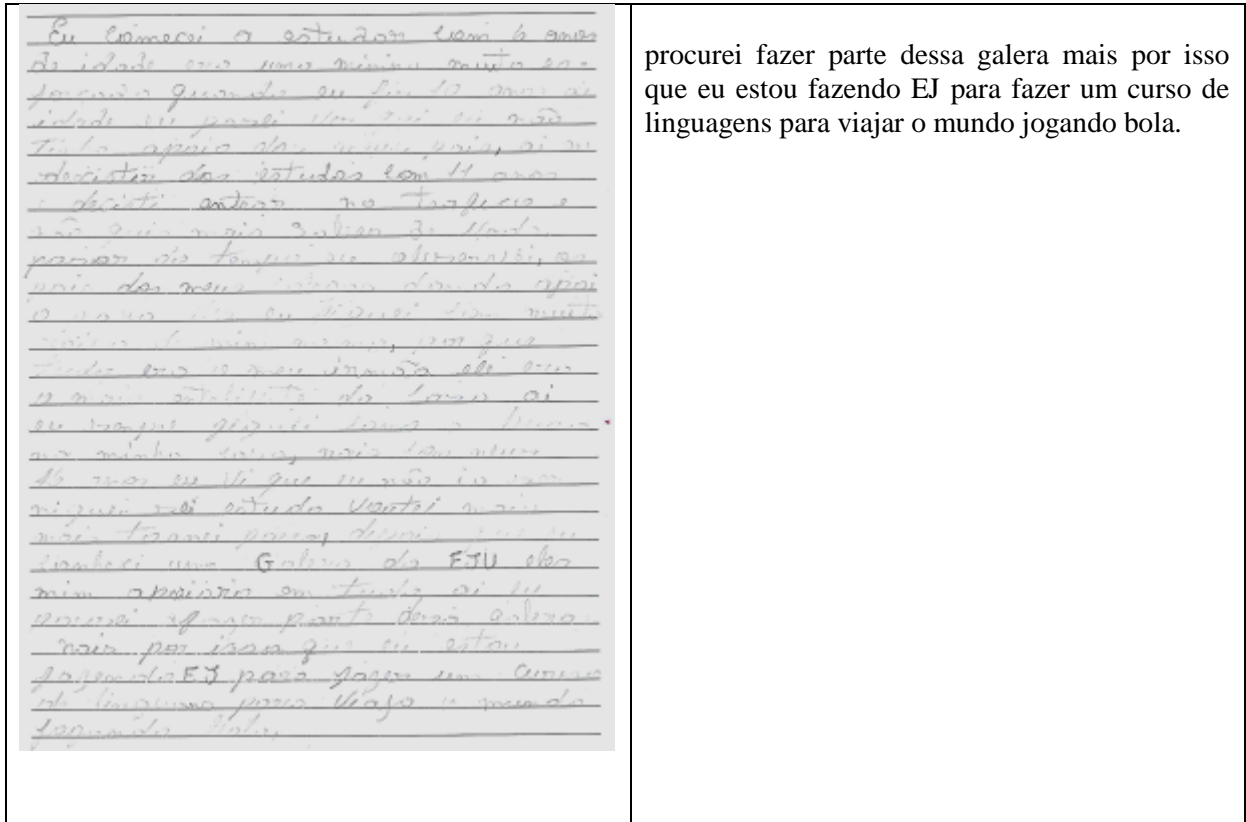 Eu Comecei a estudar com 6 anos
de idade era uma minina muito es-
forçada quando eu fiz 10 anos di
idade eu parei por qui eu não
Tinha apoio dos meus pais, ai eu
desistir dos estudos com 11 anos
decisti antrar no trafico e
não quis mais saber di
passar do tempo eu
dos meus dando apoi
eu fiquei com muita
di mim, por que
tudo era o meu irmão ele era
o mais da casa ai
eu sempre fiquei como a
na minha casa, mais com meus
16 anos eu vi que eu não ia ser
estudo Voutei mais
mais depois que eu
conheci uma Galera da FJU eles
mim apoiaro em tudo ai eu
fazer parti desa galera
mais por isso que eu estou
fazendo EJ para fazer um curso
di para viaja o mundo
jogando bola.
procurei fazer parte dessa galera mais por isso
que eu estou fazendo EJ para fazer um curso de
linguagens para viajar o mundo jogando bola.